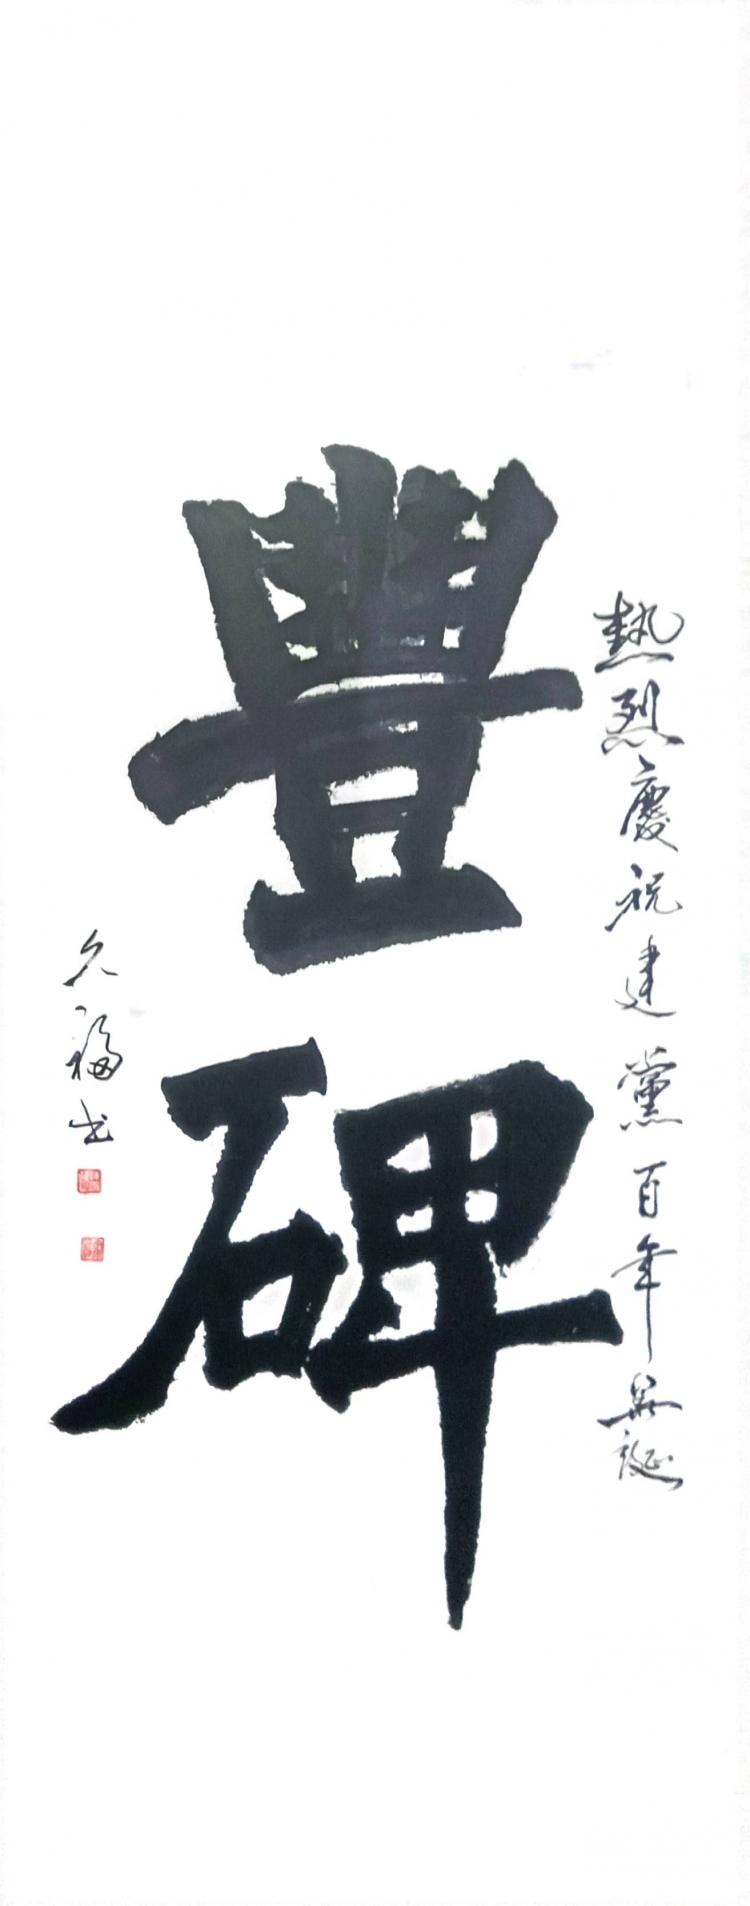 熱烈慶祝建黨百年華誕
豐碑
久福书